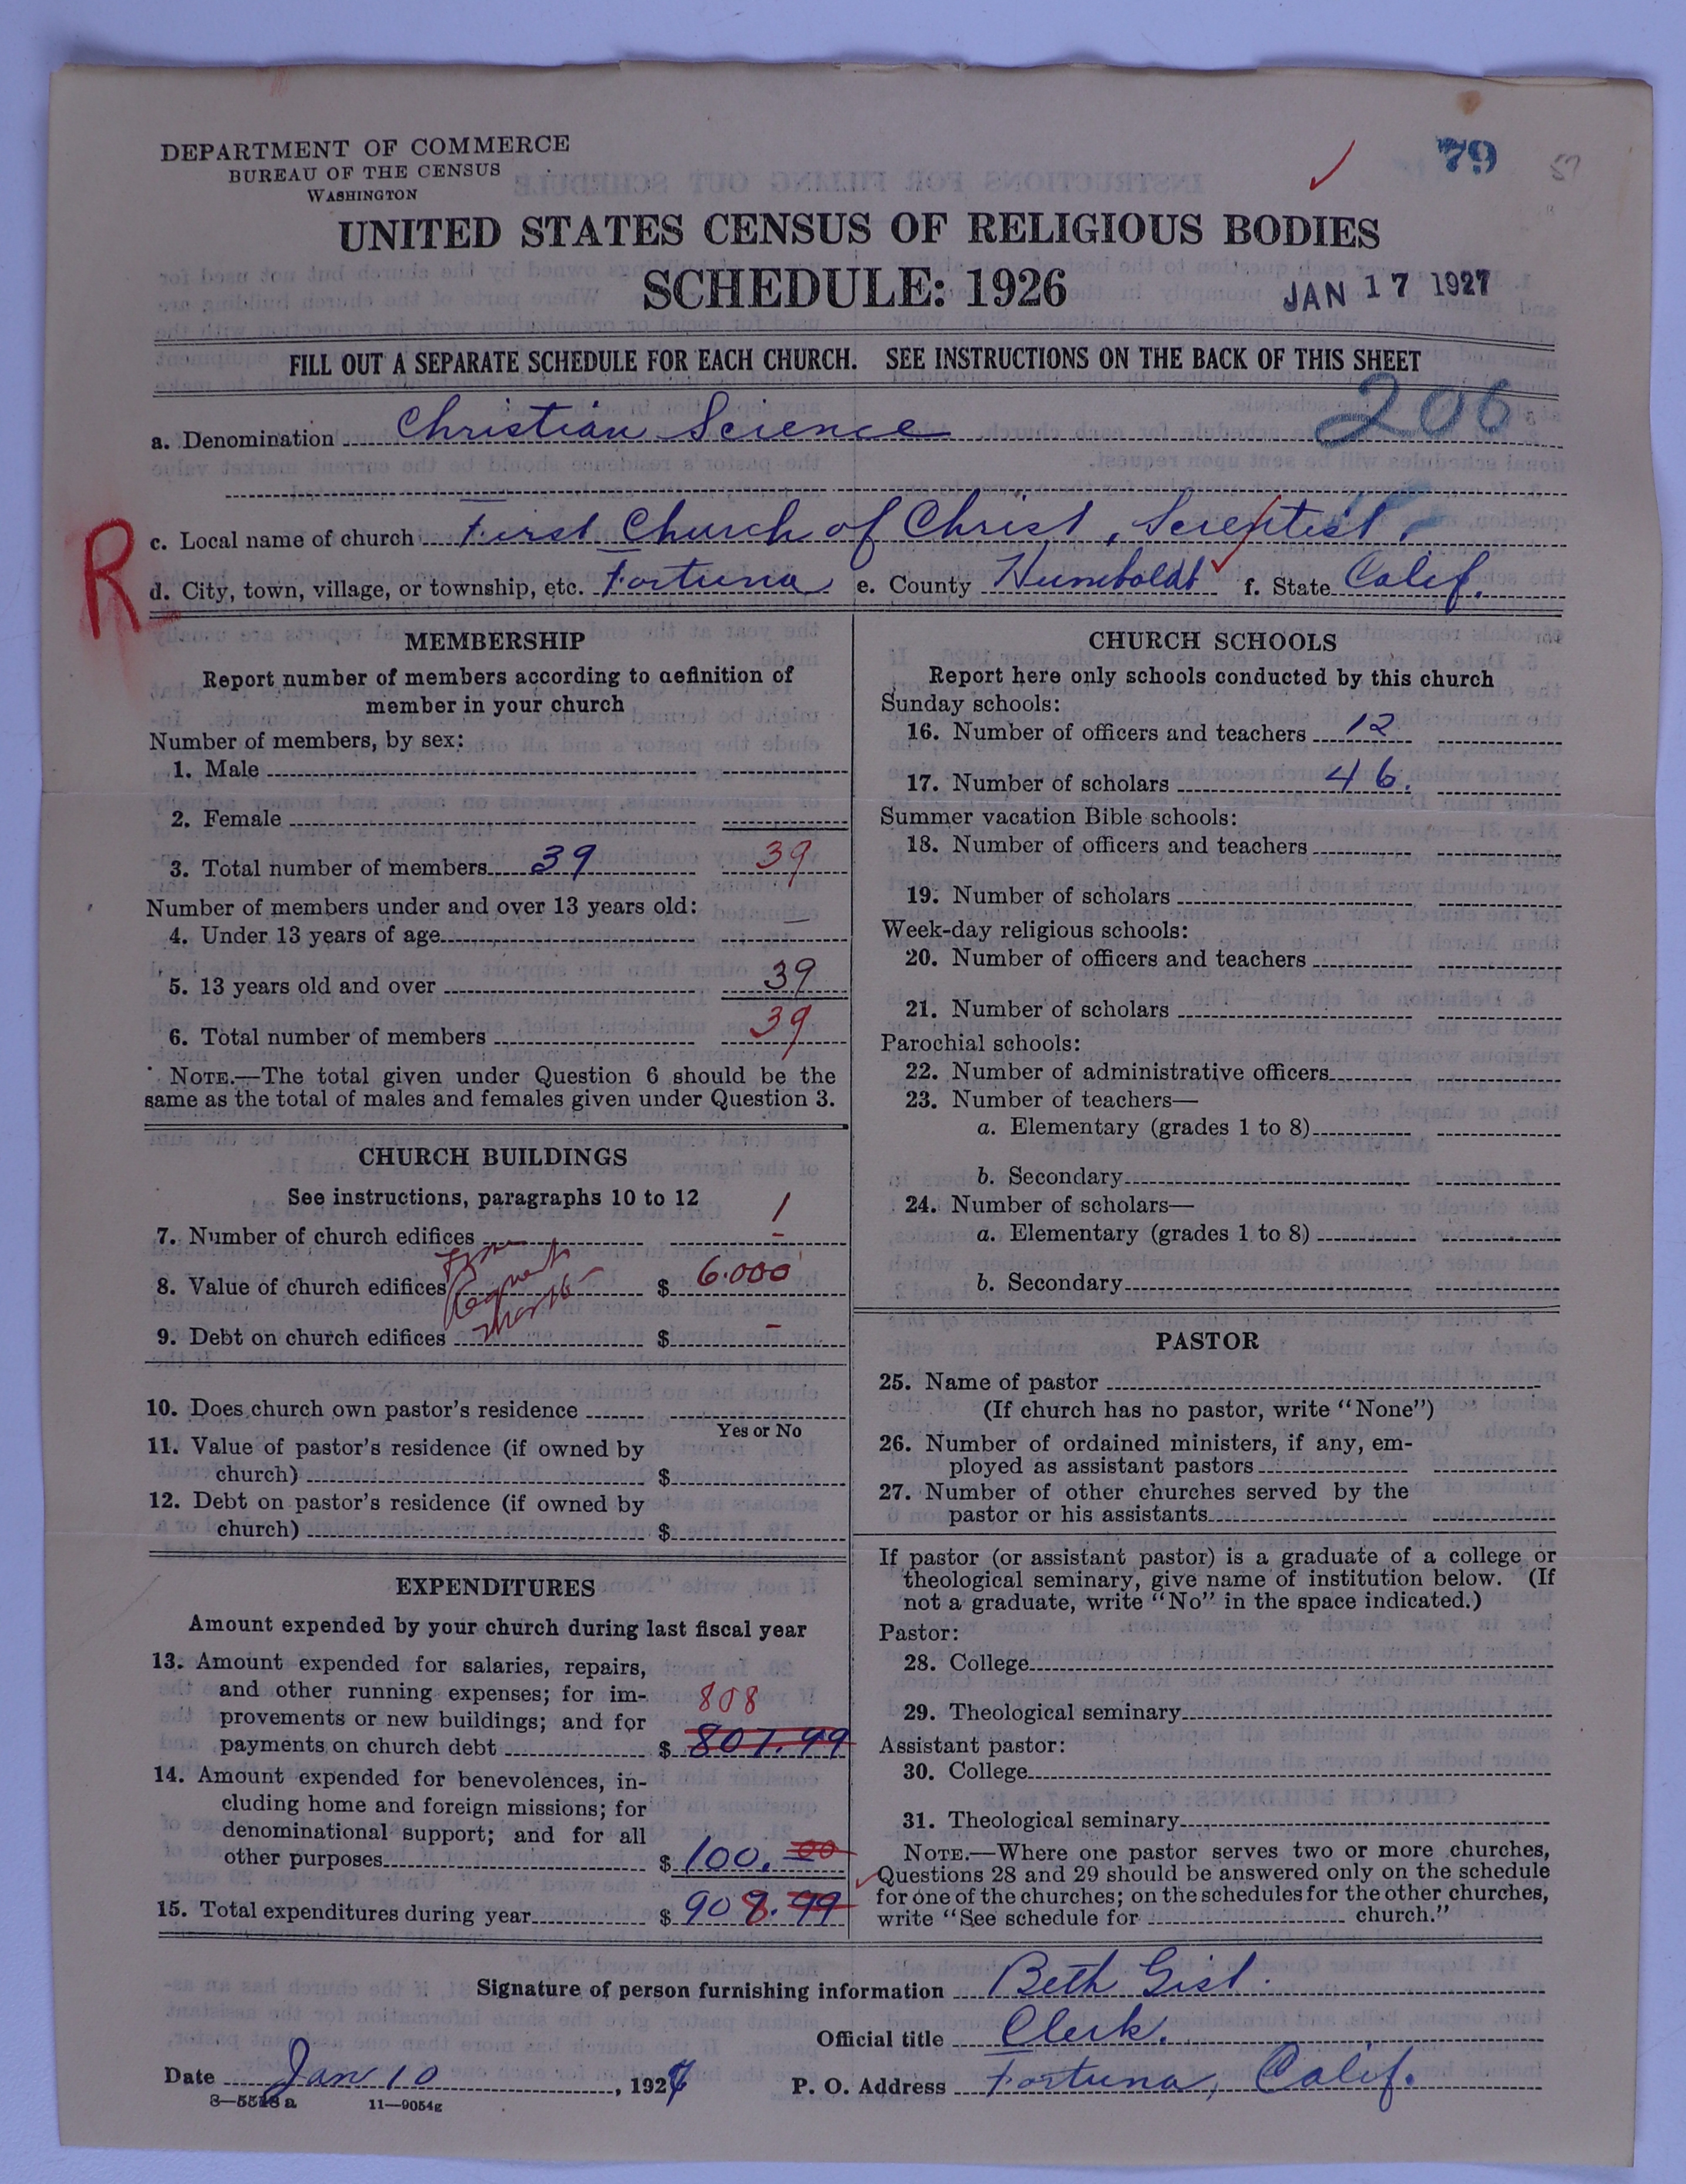 DEPARTMENT OF COMMERCE
BUREAU OF THE CENSUS
WASHINGTON
79
57
UNITED STATES CENSUS OF RELIGIOUS BODIES
SCHEDULE: 1926
JAN 17 1927
FILL OUT A SEPARATE SCHEDULE FOR EACH CHURCH. SEE INSTRUCTIONS ON THE BACK OF THIS SHEET
206
a. Denomination Christian Science
R
c. Local name of church First Church of Christ, Scientist.
d. City, town, village, or township, etc. Fortuna e. County Humboldt f. State Calif.
MEMBERSHIP
Report number of members according to definition of
member in your church
Number of members, by sex:
1. Male
2. Female
3. Total number of members 39 39
Number of members under and over 13 years old:
4. Under 13 years of age —
5. 13 years old and over 39
6. Total number of members 39
NOTE.—The total given under Question 6 should be the
same as the total of males and females given under Question 3.
CHURCH BUILDINGS
See instructions, paragraphs 10 to 12
7. Number of church edifices 1
8. Value of church edifices $ 6.000
9. Debt on church edifices $ –
10. Does church own pastor's residence
Yes or No
11. Value of pastor's residence (if owned by
church) $
12. Debt on pastor's residence (if owned by
church) $
EXPENDITURES
Amount expended by your church during last fiscal year
13. Amount expended for salaries, repairs,
and other running expenses; for im-
provements or new buildings; and for
808
payments on church debt $ 807.99
14. Amount expended for benevolences, in-
cluding home and foreign missions; for
denominational support; and for all
other purposes $ 100.00
15. Total expenditures during year $ 908.99
CHURCH SCHOOLS
Report here only schools conducted by this church
Sunday schools:
16. Number of officers and teachers 12
17. Number of scholars 46.
Summer vacation Bible schools:
18. Number of officers and teachers
19. Number of scholars
Week-day religious schools:
20. Number of officers and teachers
21. Number of scholars
Parochial schools:
22. Number of administrative officers
23. Number of teachers—
a. Elementary (grades 1 to 8)
b. Secondary
24. Number of scholars—
a. Elementary (grades 1 to 8)
b. Secondary
PASTOR
25. Name of pastor
(If church has no pastor, write "None")
26. Number of ordained ministers, if any, em-
ployed as assistant pastors
27. Number of other churches served by the
pastor or his assistants
If pastor (or assistant pastor) is a graduate of a college or
theological seminary, give name of institution below. (If
not a graduate, write "No" in the space indicated.)
Pastor:
28. College
29. Theological seminary
Assistant pastor:
30. College
31. Theological seminary
NOTE.—Where one pastor serves two or more churches,
Questions 28 and 29 should be answered only on the schedule
for one of the churches; on the schedules for the other churches,
write "See schedule for church."
Signature of person furnishing information Beth Gist.
Official title Clerk.
Date Jan 10, 1927 P. O. Address Fortuna, Calif.
8—5518a 11—9054g